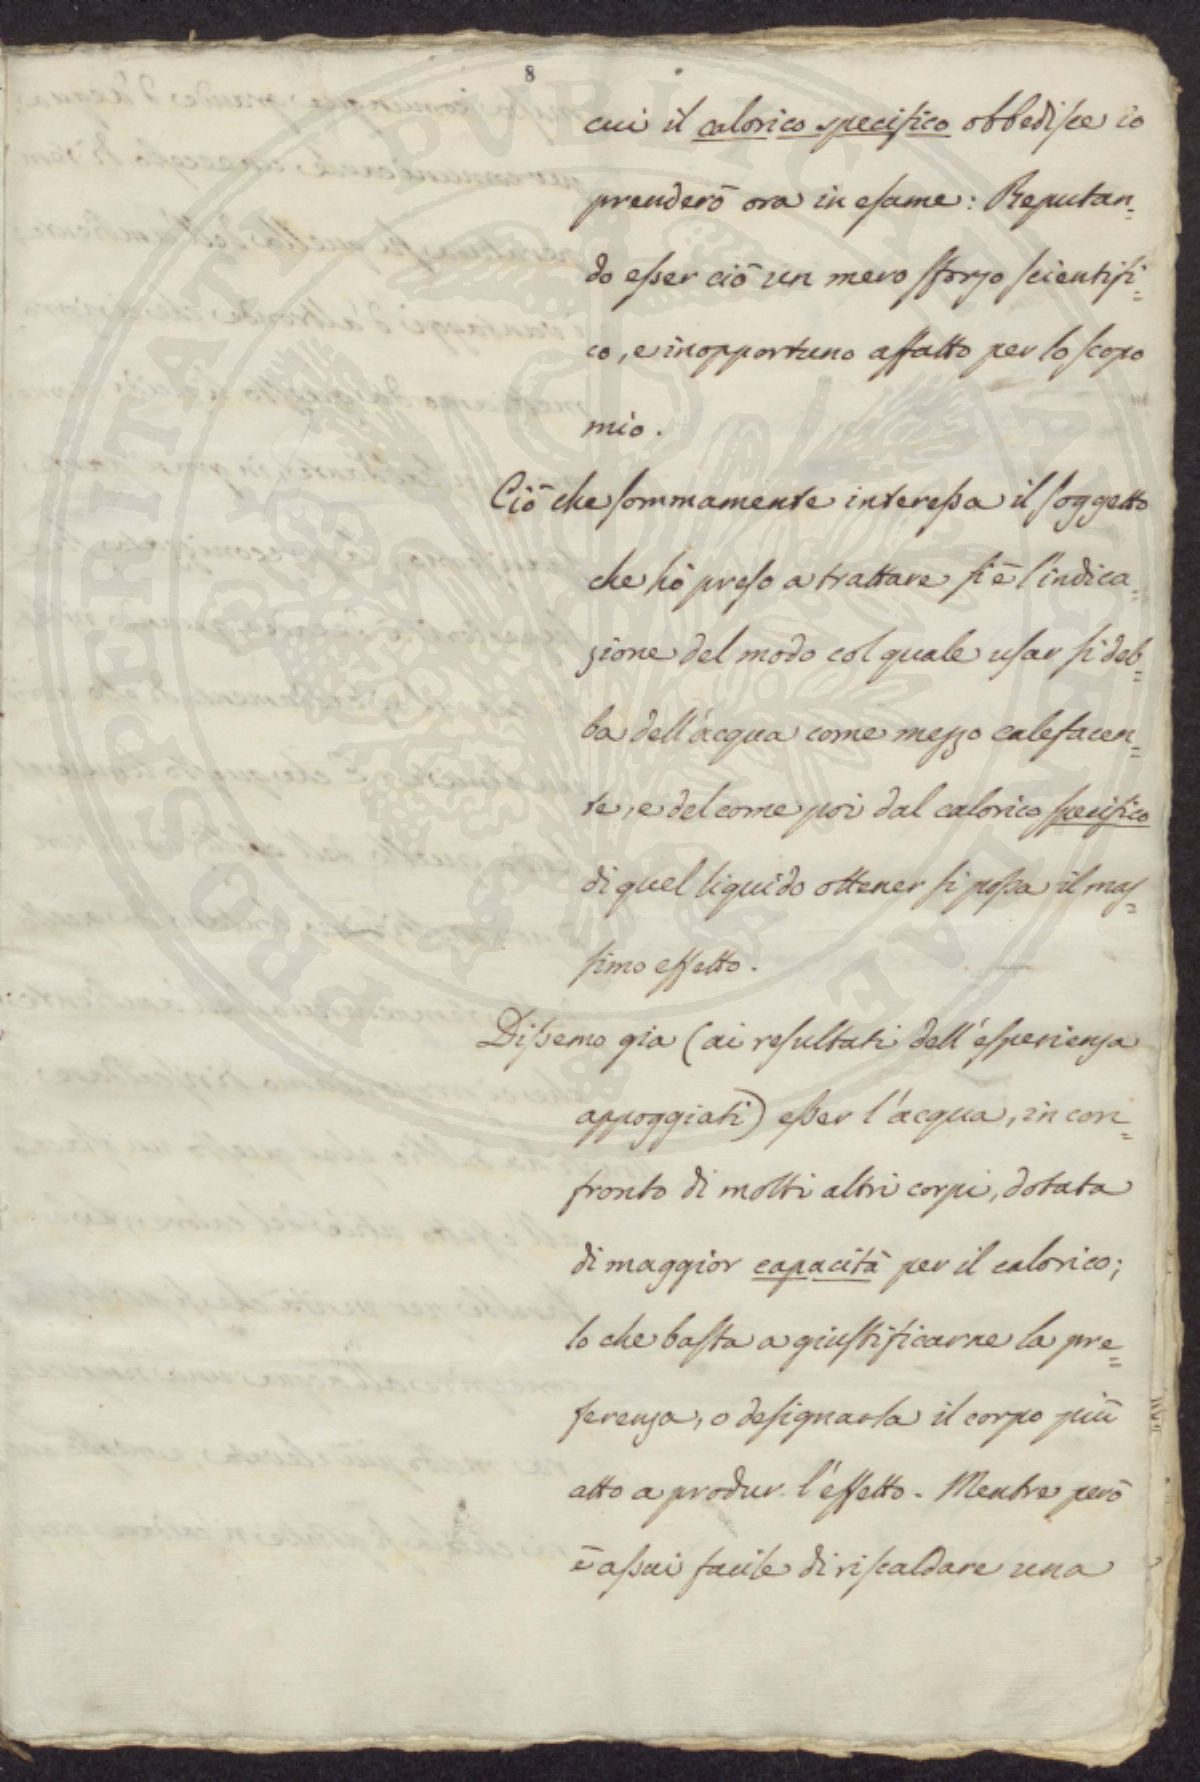 8
cui il calorico specifico obbedisce io
prenderò ora in esame: Reputan=
do esser ciò un mero sforzo scientifi=
co, e inopportuno affatto per lo scopo
mio.
Ciò che sommamente interessa il soggetto
che hò preso a trattare si è l'indica=
zione del modo col quale usar si deb=
ba dell'acqua come mezzo calefacen=
te, e del come poi dal calorico specifico
di quel liquido ottener si possa il mas=
simo effetto.
Dissemo gia (ai resultati dell'esperienza
appoggiati) esser l'acqua, in con=
fronto di molti altri corpi, dotata
di maggior capacità per il calorico;
lo che basta a giustificarne la pre=
ferenza, o designarla il corpo più
atto a produr l'effetto. Mentre però
è assai facile di riscaldare una
PROSPERITATI PVBLICAE AVGENDAE